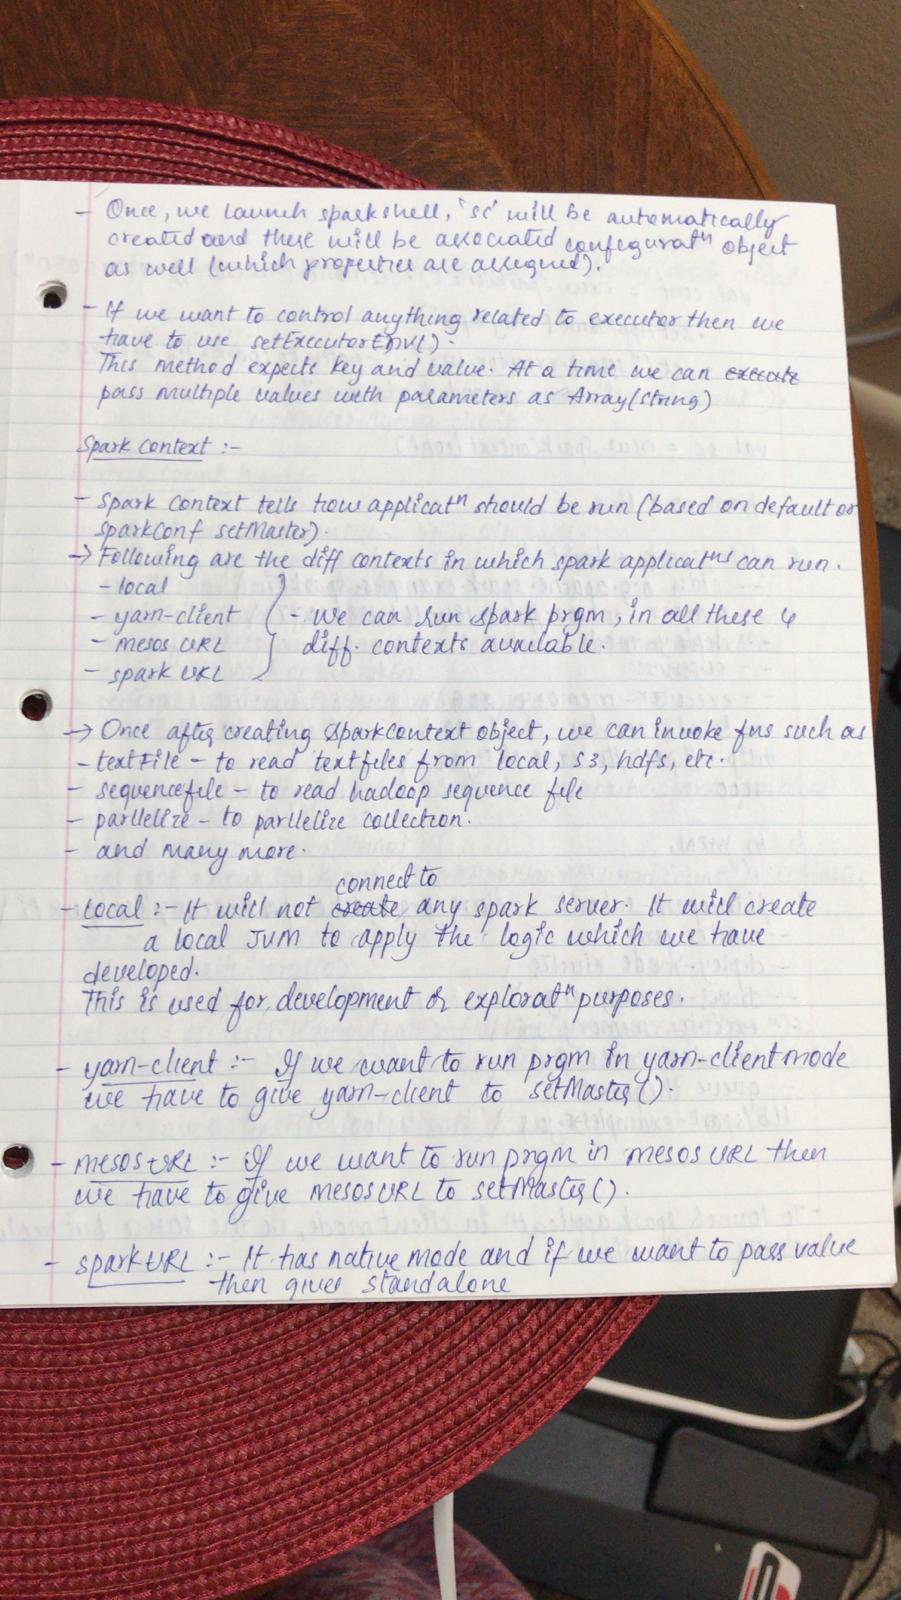 - Once, we launch sparkshell, 'sc' will be automatically
created and there will be associated configuratⁿ object
as well (which properties are assigned).
- If we want to control anything related to executor then we
have to use setExecutorEnv().
This method expects key and value. At a time we can execute
pass multiple values with parameters as Array(string)
Spark Context :-
- Spark Context tells how applicatⁿ should be run (based on default or
sparkConf setMaster).
→ Following are the diff contexts in which spark applicatⁿˢ can run.
- local
- yarn-client - we can run spark prgm, in all these 4
- mesos URL diff. contexts available.
- spark URL
→ Once after creating SparkContext object, we can invoke fns such as
- textFile - to read textfiles from local, s3, hdfs, etc.
- sequencefile - to read hadoop sequence file
- parllelize - to parllelize collection.
- and many more.
connect to
- local :- It will not create any spark server. It will create
a local JVM to apply the logic which we have
developed.
This is used for development or exploratⁿ purposes.
- yarn-client :- If we want to run prgm in yarn-client mode
we have to give yarn-client to setMaster().
- mesos URL :- If we want to run prgm in mesos URL then
we have to give mesos URL to setMaster().
- spark URL :- It has native mode and if we want to pass value
then gives standalone